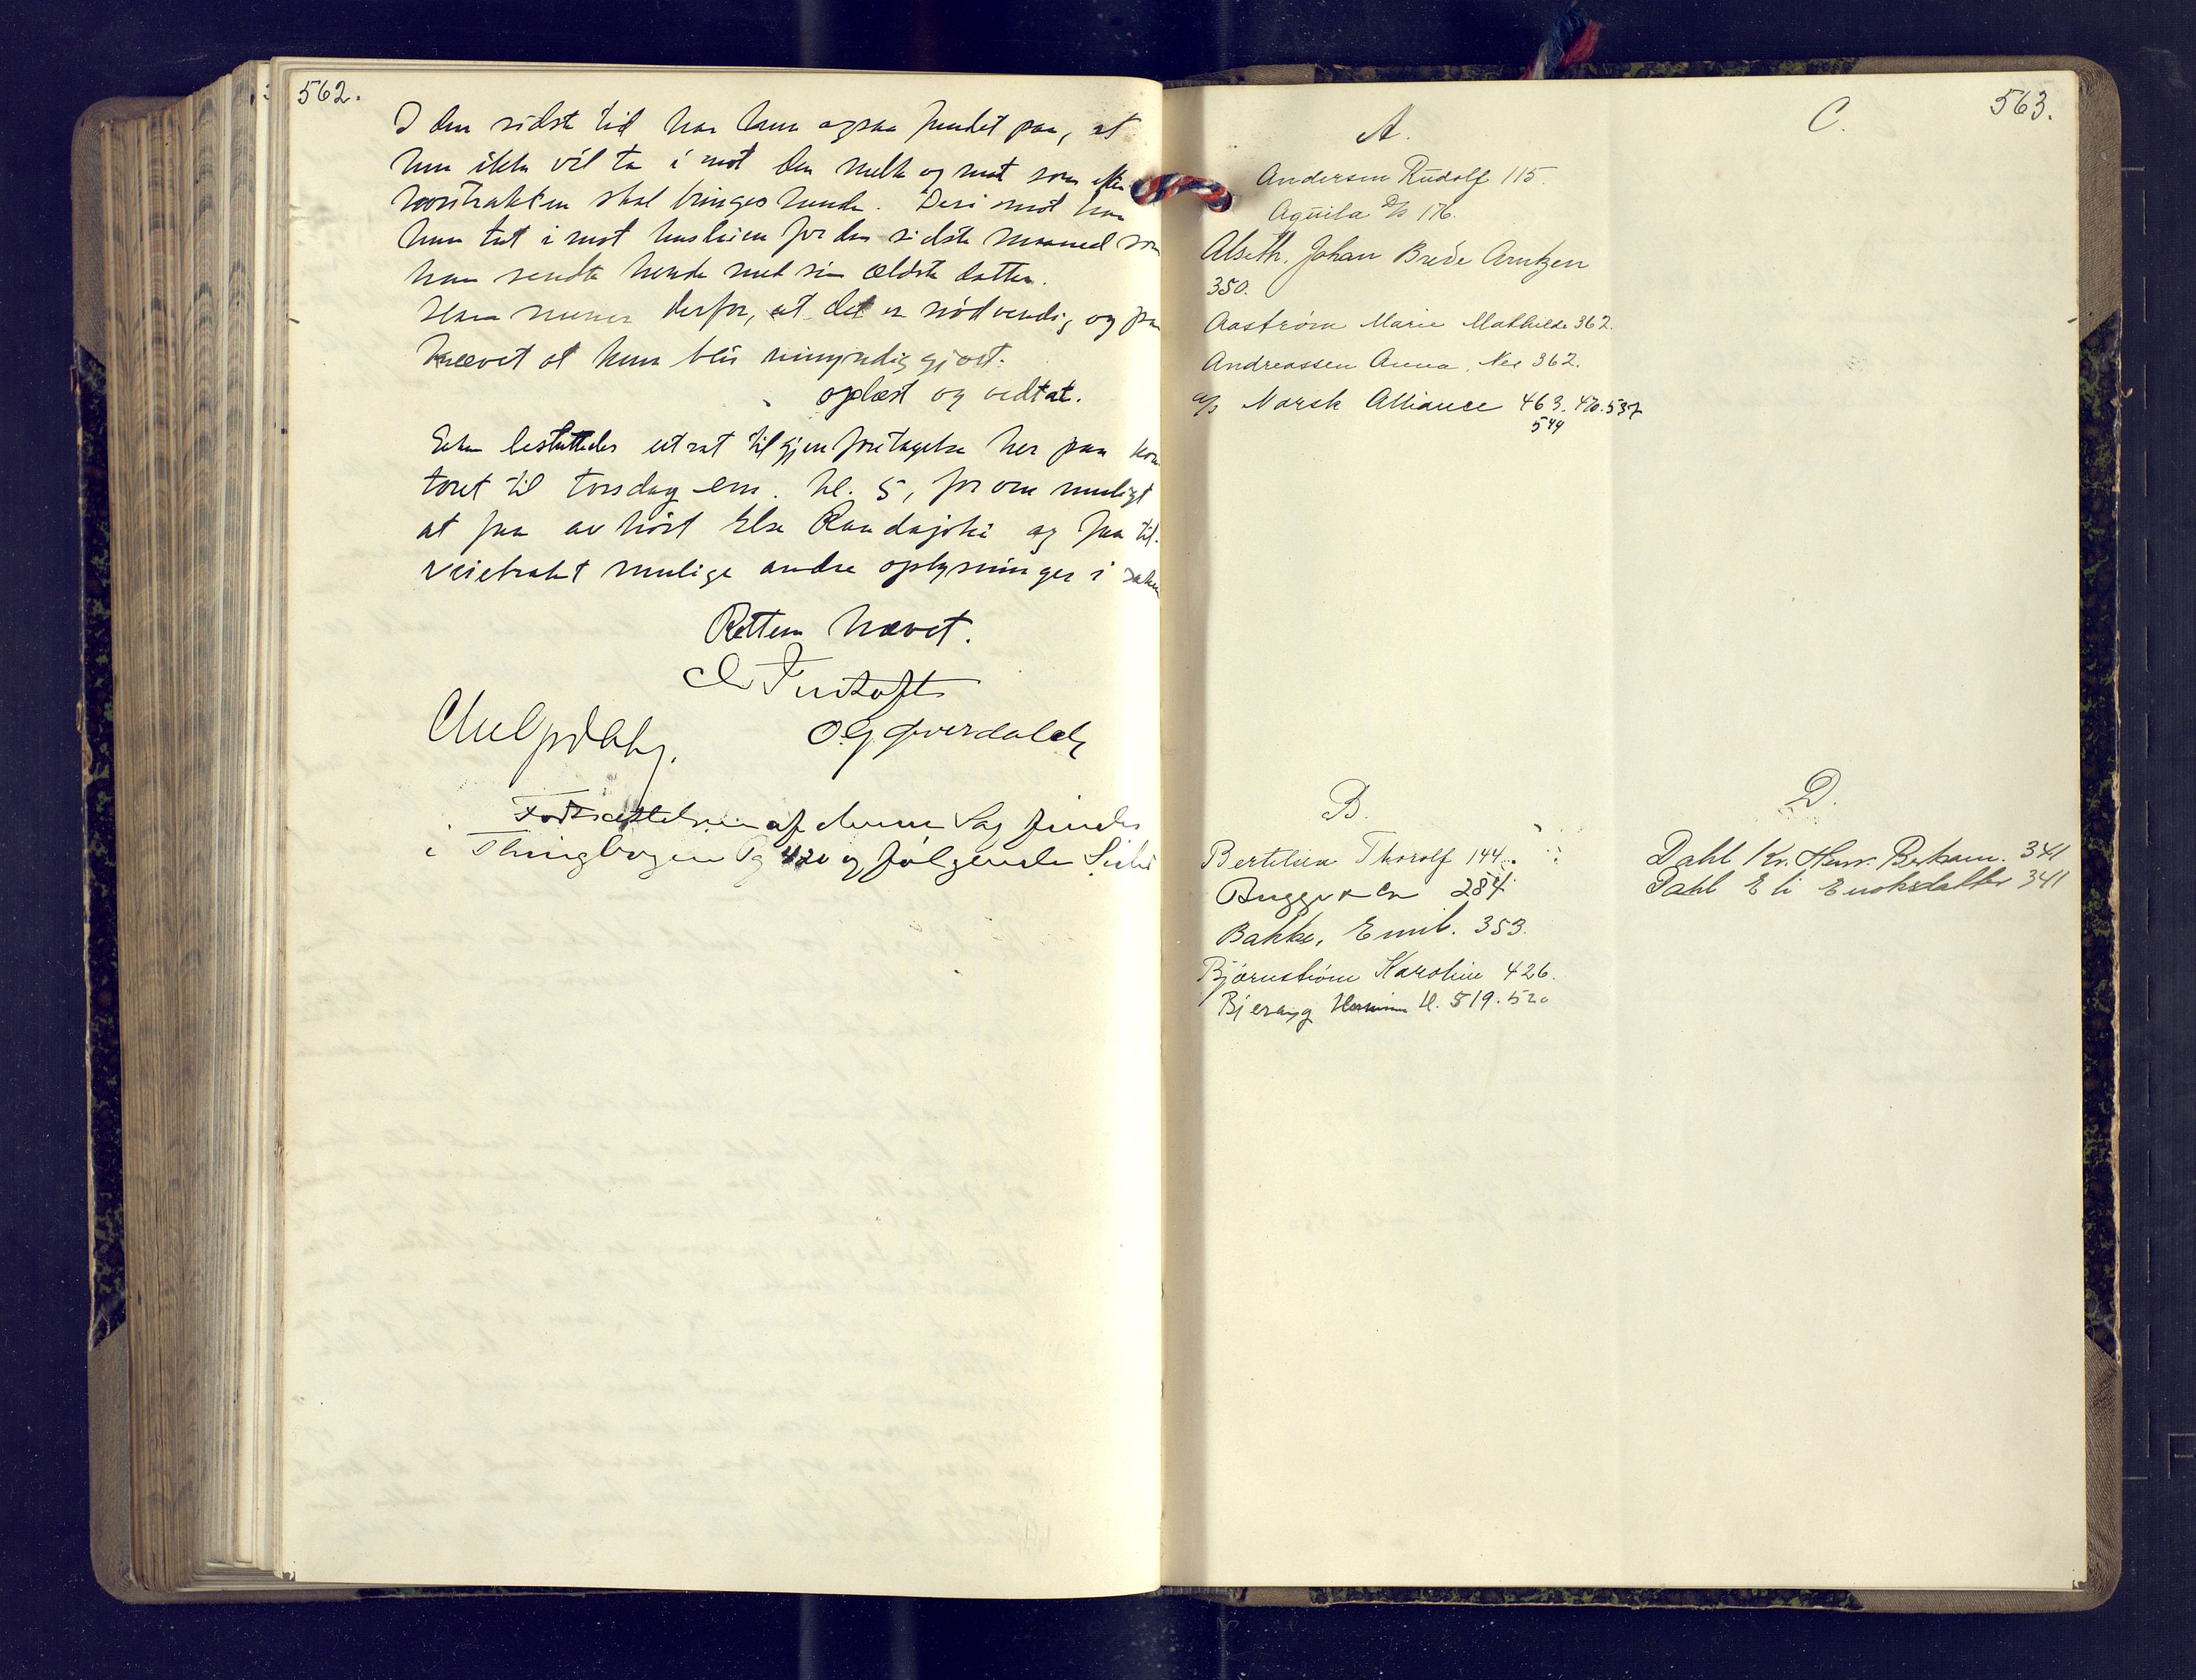 562.
I den sidste tid har hun ogsaa fundet paa, at
hun ikke vil ta i mot den melk og mat som efter
kontrakten skal bringes hende. Deri mot har
hun tat i mot husleien for den sidste maaned som
han sendte hende med sin ældste datter.
Han mener derfor, at det er nødvendig og paa
krævet at hun blir umyndiggjort.
oplæst og vedtat.
Efter besluttedes utsat til gjenforetagelse her paa kon
toret til torsdag em. kl. 5, for om muligt
at faa avhørt Else Randajoki og faa til-
veiebrakt mulige andre oplysninger i saken
Retten hævet.
O. G. Øverdalch
Fortsættelsen af denne Sag findes
i Thingbogen Pg 420 og følgende Sider
563.
A.
Andersen Rudolf 115.
Aquila D/S 176.
Alseth, Johan Brede Arntzen
350.
Aastrøm Marie Mathilde 362.
Andreassen Anna, Nes 362.
a/s Norsk Alliance 463. 470. 537
544
B.
Bertelsen Thorolf 144.
Bugge & Co 284
Bakke, Emil. 353.
Bjørnstrøm Karoline 426.
H. 519. 520
C.
D.
Dahl Kr. Henr. 341
Dahl Eli Enoksdatter 341